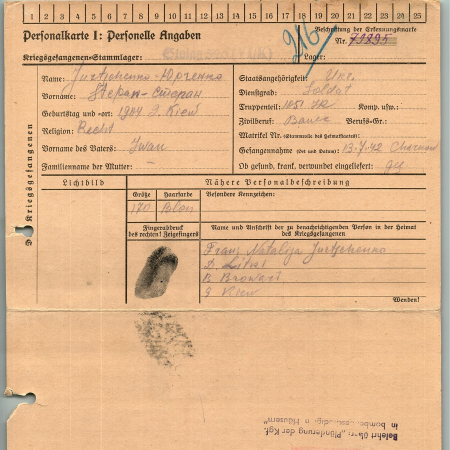 1 2 3 4 5 6 7 8 9 10 11 12 13 14 15 16 17 18 19 20 21 22 23 24 25
Personalkarte I: Personelle Angaben
Beschriftung der Erkennungsmarke
Nr. 79895
Kriegsgefangenen-Stammlager:
Lager:
216
Des Kriegsgefangenen
Name: Jurtschenko - Юрченко
Vorname: Stepan - Степан
Geburtstag und -ort: 1904 G. Kiew
Religion: Recht
Vorname des Vaters: Iwan
Familienname der Mutter: –
Staatsangehörigkeit: Ukr.
Dienstgrad: Soldat
Truppenteil: 1051 Komp. usw.:
Zivilberuf: Bauer Berufs-Gr.:
Matrikel Nr. (Stammrolle des Heimatstaates):
Gefangennahme (Ort und Datum): 13.7.42
Ob gesund, krank, verwundet eingeliefert: ges
Lichtbild
Nähere Personalbeschreibung
Größe
Haarfarbe
Besondere Kennzeichen:
170
Blon
Fingerabdruck
des rechten! Zeigefingers
Name und Anschrift der zu benachrichtigenden Person in der Heimat
des Kriegsgefangenen
Frau Natalija Jurtschenko
D.
R. Browari
G. Kiew
Wenden!
Belehrt über „Plünderung der Kgf.
in bomb. Häusern"